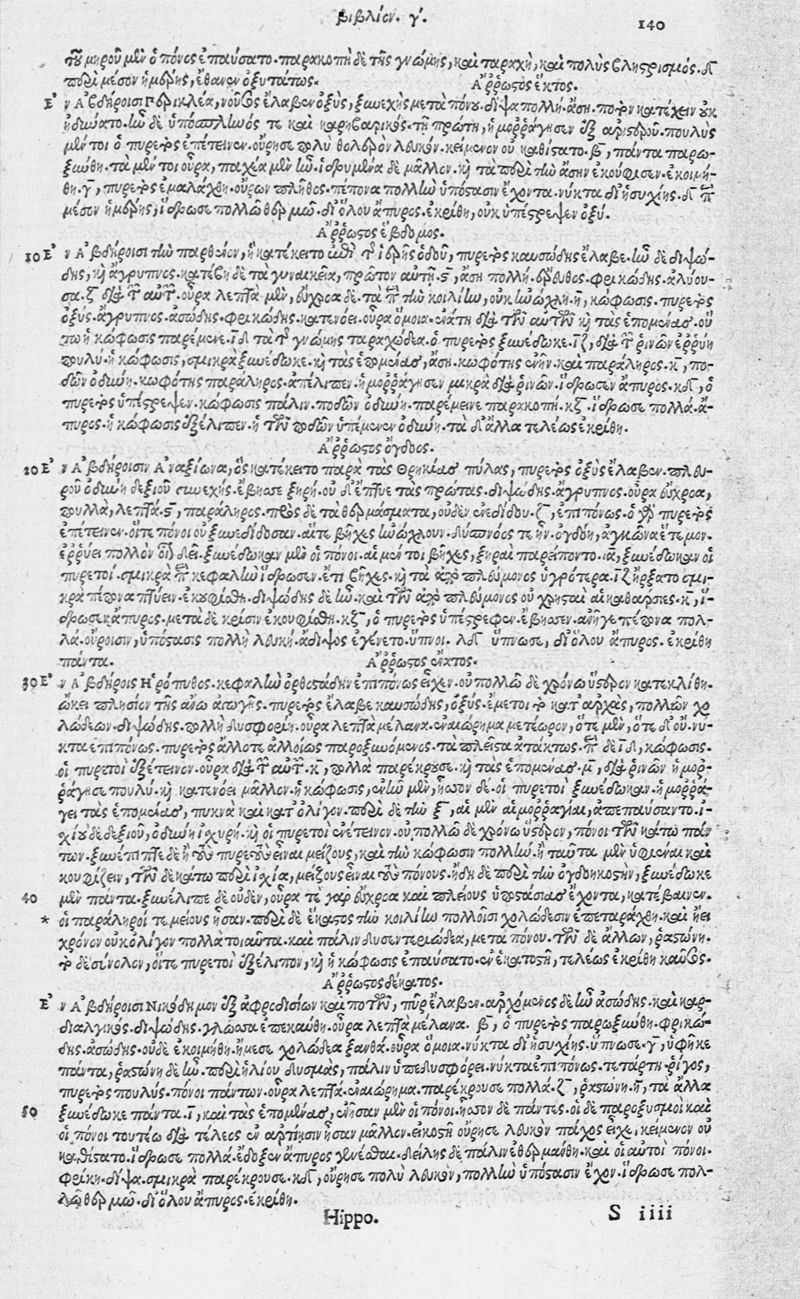 βιβλίον. γ΄. 140
τοῦ μηροῦ μὲν ὁ πόνος ἐπαύσατο. παρακοπὴ δὲ τῆς γνώμης, καὶ ταραχὴ, καὶ πολὺς βληστρισμός. δ
περὶ μέσον ἡμέρης, ἔθανεν ὀξυτάτως. Ἄῤῥωστος ἕκτος.
Ἐν Ἀβδήροισι Περικλέα, πυρετὸς ἔλαβεν ὀξὺς, ξυνεχὴς μετὰ πόνου. δίψα πολλή. ἄση. ποτὸν κατέχειν οὐκ
ἠδύνατο. ἦν δὲ ὑπόσπληνός τε καὶ καρηβαρικός. τῇ πρώτῃ, ᾑμοῤῥάγησεν ἐξ ἀριστεροῦ. πουλὺς
μέντοι ὁ πυρετὸς ἐπέτεινεν. οὔρησε πολὺ θολερὸν λευκόν. κείμενον οὐ καθίστατο. β, πάντα παρω-
ξύνθη. τὰ μέντοι οὖρα, παχέα μὲν ἦν. ἱδρυμένα δὲ μᾶλλον. καὶ τὰ περὶ τὴν ἄσην ἐκούφισεν. ἐκοιμή-
θη. γ, πυρετὸς ἐμαλάχθη. οὔρων πλῆθος. πέπονα πολλὴν ὑπόστασιν ἔχοντα. νύκτα δι' ἡσυχίης. δ περὶ
μέσον ἡμέρης, ἵδρωσε πολλῷ θερμῷ. δι' ὅλου ἄπυρος. ἐκρίθη, οὐκ ὑπέστρεψεν ὀξύ.
Ἄῤῥωστος ἕβδομος.
10 Ἐν Ἀβδήροισι τὴν παρθένον, ἣ κατέκειτο ἐπὶ τῆς ἱερῆς ὁδοῦ, πυρετὸς καυσώδης ἔλαβε. ἦν δὲ διψώ-
δης, καὶ ἄγρυπνος. κατέβη δὲ τὰ γυναικεῖα, πρῶτον αὐτῇ. ς, ἄση πολλή. ἔρευθος. φρικώδης. ἀλύου-
σα. ζ διὰ τῶν αὐτῶν. οὖρα λεπτὰ μὲν, εὔχροα δέ. τὰ περὶ τὴν κοιλίην, οὐκ ἠνώχλει. η, κώφωσις. πυρετὸς
ὀξύς. ἄγρυπνος. ἀσώδης. φρικώδης. κατενόει. οὖρα ὅμοια. ἐνάτῃ διὰ τῶν αὐτῶν καὶ τὰς ἑπομένας. οὕ
τω ἡ κώφωσις παρέμενε. ιδ τὰ τῆς γνώμης ταραχώδεα. ὁ πυρετὸς ξυνέδωκε. ιζ, διὰ ῥινῶν ἐῤῥύη
πουλύ. ἡ κώφωσις, σμικρὰ ξυνέδωκε. καὶ τὰς ἑπομένας, ἄση. κωφότης ἐνῆν. καὶ παράληρος. κ, πο-
δῶν ὀδύνη. κωφότης παράληρος ἀπέλιπεν. ᾑμοῤῥάγησεν μικρὰ διὰ ῥινῶν. ἵδρωσεν ἄπυρος. κδ, ὁ
πυρετὸς ὑπέστρεψεν. κώφωσις πάλιν. ποδῶν ὀδύνη. παρέμεινε παρακοπή. κζ. ἵδρωσε πολλά. ἄ-
πυρος. ἡ κώφωσις ἐξέλιπεν. ἡ τῶν ποδῶν ὑπέμενεν ὀδύνη. τὰ δ' ἄλλα τελέως ἐκρίθη.
Ἄῤῥωστος ὄγδοος.
20 Ἐν Ἀβδήροισιν Ἀναξίωνα, ὃς κατέκειτο παρὰ τὰς Θρηϊκίας πύλας, πυρετὸς ὀξὺς ἔλαβεν. πλευ-
ροῦ ὀδύνη δεξιοῦ συνεχής. ἔβησσε ξηρή. οὐ δ' ἔπτυε τὰς πρώτας. διψώδης. ἄγρυπνος. οὖρα εὔχροα,
πουλλὰ, λεπτά. ς, παράληρος. πρὸς δὲ τὰ θερμάσματα, οὐδὲν ἐνεδίδου. ζ, ἐπιπόνως. ὁ γὰρ πυρετὸς
ἐπέτεινεν. οἵ τε πόνοι οὐ ξυνεδίδοσαν. αἵ τε βῆχες ἠνώχλουν. δύσπνοός τε ἦν. ὀγδόῃ, ἀγκῶνα ἔτεμον.
ἐῤῥύει πολλὸν οἷον δεῖ. ξυνέδωκαν μὲν οἱ πόνοι. αἱ μέντοι βῆχες, ξηραὶ παρείποντο. ια, ξυνέδωκαν οἱ
πυρετοί. σμικρὰ περὶ κεφαλὴν ἵδρωσεν. ἔτι βῆχες. καὶ τὰ ἀπὸ πλεύμονος ὑγρότερα. ιζ ἤρξατο σμι-
κρὰ πέπονα πτύειν. ἐκουφίσθη. διψώδης δὲ ἦν. καὶ τῶν ἀπὸ πλεύμονος οὐ χρησταὶ αἱ καθάρσιες. κ, ἵ-
δρωσεν ἄπυρος. μετὰ δὲ κρίσιν ἐκουφίσθη. κζ, ὁ πυρετὸς ὑπέστρεφεν. ἔβησσεν. ἀνῆγε πέπονα πολ-
λά. οὔροισιν, ὑπόστασις πολλὴ λευκή. ἄδιψος ἐγένετο. ὕπνοι. λδ ὕπνωσε, δι' ὅλου ἄπυρος. ἐκρίθη
πάντα. Ἄῤῥωστος ἔνατος.
30 Ἐν Ἀβδήροις Ἡρόπυθος. κεφαλὴν ὀρθοστάδην ἐπιπόνως εἶχεν. οὐ πολλῷ δὲ χρόνῳ ὕστερον κατεκλίθη.
ᾤκει πλησίον τῆς ἄνω ἀγωγῆς. πυρετὸς ἔλαβε καυσώδης, ὀξύς. ἔμετοι τὸ κατ' ἀρχὰς, πολλῶν χο
λωδέων. διψώδης. πολλὴ δυσφορίη. οὖρα λεπτὰ μέλανα. ἐναιώρημα μετέωρον, ὁτὲ μὲν, ὁτὲ δ' οὔ. νύ-
κτα ἐπιπόνως. πυρετὸς ἄλλοτε ἀλλοίως παροξυνόμενος. τὰ πλεῖστα ἀτάκτως. περὶ δὲ ιδ, κώφωσις.
οἱ πυρετοὶ ἐξέτεινον. οὖρα διὰ τῶν αὐτῶν. κ, πολλὰ παρέκρουσε. καὶ τὰς ἑπομένας. μ, διὰ ῥινῶν ᾑμοῤ-
ράγησε πουλύ. καὶ κατενόει μᾶλλον. ἡ κώφωσις, ἐνῆν μὲν, ἧσσον δέ. οἱ πυρετοὶ ξυνέδωκαν. ᾑμοῤῥά-
γει τὰς ἑπομένας, πυκνὰ καὶ κατ' ὀλίγον. περὶ δὲ τὴν ξ, αἱ μὲν αἱμοῤῥαγίαι, ἀπεπαύσαντο. ἰ-
σχίου δὲ δεξιοῦ, ὀδύνη ἰσχυρή. καὶ οἱ πυρετοὶ ἐπέτεινον. οὐ πολλῷ δὲ χρόνῳ ὕστερον, πόνοι τῶν κάτω πάν
των. ξυνέπιπτε δὲ ἢ τοὺς πυρετοὺς εἶναι μείζους, καὶ τὴν κώφωσιν πολλήν. ἢ ταῦτα μὲν ὑφιέναι καὶ
κουφίζειν, τῶν δὲ κάτω περὶ ἰσχία, μείζους εἶναι τοὺς πόνους. ἤδη δὲ περὶ τὴν ὀγδοηκοστὴν, ξυνέδωκε
40 μὲν πάντα. ξυνέλιπε δὲ οὐδὲν, οὖρά τε γὰρ εὔχροα καὶ πλείους ὑποστάσιας ἔχοντα, κατέβαινεν.
* οἱ παράληροί τε μείους ἦσαν. περὶ δὲ ἑκατοστὴν κοιλίην πολλοῖσι χολώδεσιν ἐπεταράχθη. καὶ ᾔει
χρόνον οὐκ ὀλίγον πολλὰ τοιαῦτα. καὶ πάλιν δυσεντεριώδεα, μετὰ πόνου. τῶν δὲ ἄλλων, ῥαστώνη.
τὸ δὲ σύνολον, οἵ τε πυρετοὶ ἐξέλιπον, καὶ ἡ κώφωσις ἐπαύσατο. ἐν ἑκατοστῇ, τελέως ἐκρίθη καῦσος.
Ἄῤῥωστος δέκατος.
Ἐν Ἀβδήροισι Νικόδημον ἐξ ἀφροδισίων καὶ ποτῶν, πῦρ ἔλαβεν. ἀρχόμενος δὲ ἦν ἀσώδης. καὶ καρ-
διαλγικός. διψώδης. γλῶσσα ἐπεκαύθη. οὖρα λεπτὰ μέλανα. β, ὁ πυρετὸς παρωξύνθη. φρικώ-
δης. ἀσώδης. οὐδὲ ἐκοιμήθη. ἤμεσε χολώδεα ξανθά. οὖρα ὅμοια. νύκτα δι' ἡσυχίης. ὕπνωσε. γ, ὑφῆκε
πάντα, ῥαστώνη δὲ ἦν. περὶ ἡλίου δυσμὰς, πάλιν ὑπεδυσφόρει. νύκτα ἐπιπόνως. τετάρτῃ. ῥῖγος,
πυρετὸς πουλύς. πόνοι πάντων. οὖρα λεπτά. ἐναιώρημα. παρέκρουσε πολλά. ζ, ῥαστώνη. η, τὰ ἄλλα
50 ξυνέδωκε πάντα. ι, καὶ τὰς ἑπομένας, ἐνῆσαν μὲν οἱ πόνοι. ἧσσον δὲ πάντες. οἱ δὲ παροξυσμοὶ καὶ
οἱ πόνοι τουτέῳ διὰ τέλεος ἐν ἀρτίῃσιν ἦσαν μᾶλλον. εἰκοστῇ οὔρησε λευκὸν πάχος εἶχε, κείμενον οὐ
καθίστατο. ἵδρωσε πολλά. ἔδοξεν ἄπυρος γενέσθαι. δείλης δὲ πάλιν ἐθερμάνθη. καὶ οἱ αὐτοὶ πόνοι.
φρίκη. δίψα. σμικρὰ παρέκρουσε. κδ, οὔρησε πολὺ λευκὸν, πολλὴν ὑπόστασιν ἔχον. ἵδρωσε πολ-
λῷ θερμῷ. δι' ὅλου ἄπυρος. ἐκρίθη.
Hippo. S iiii